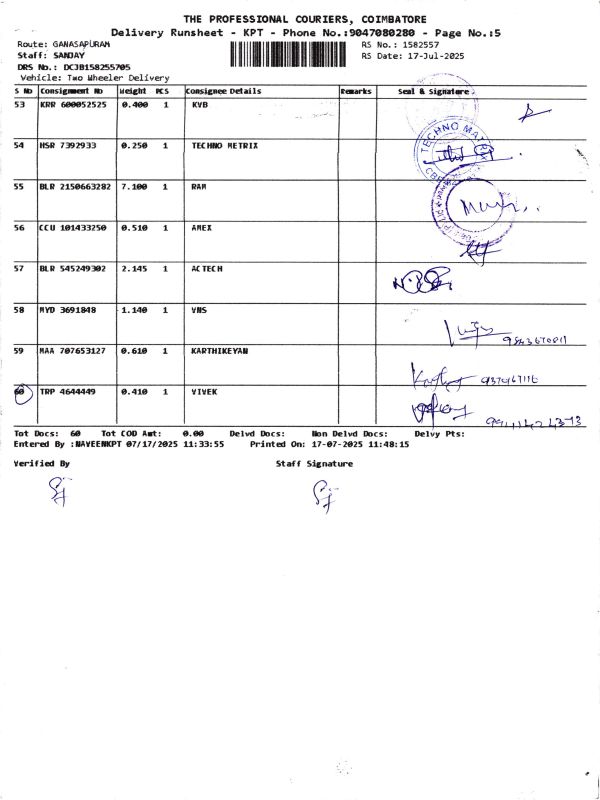 THE PROFESSIONAL COURIERS, COIMBATORE
Delivery Runsheet - KPT - Phone No.:9047080280 - Page No.:5
Route: GANASAPURAM RS No.: 1582557
Staff: SANJAY RS Date: 17-Jul-2025
DRS No.: DCJB158255705
Vehicle: Two Wheeler Delivery
S No Consignment No Weight PCS Consignee Details Remarks Seal & Signature
53 KRR 600052525 0.400 1 KVB
54 HSR 7392933 0.250 1 TECHNO METRIX
TECHNO MAT
55 BLR 2150663282 7.100 1 RAM
56 CCU 101433250 0.510 1 AMEX
57 BLR 545249302 2.145 1 ACTECH
58 MYD 3691848 1.140 1 VNS
59 MAA 707653127 0.610 1 KARTHIKEYAN
60 TRP 4644449 0.410 1 VIVEK
Tot Docs: 60 Tot COD Amt: 0.00 Delvd Docs: Non Delvd Docs: Delvy Pts:
Entered By :NAVEENKPT 07/17/2025 11:33:55 Printed On: 17-07-2025 11:48:15
Verified By Staff Signature